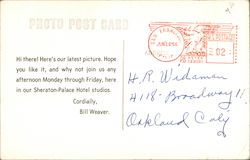 PHOTO POST CARD
Hi there! Here's our latest picture. Hope
you like it, and why not join us any
afternoon Monday through Friday, here
in our Sheraton-Palace Hotel studios.
Cordially,
Bill Weaver.
SAN FRANCISCO
02
H. R. Widaman
4118 - Broadway
Oakland Calif